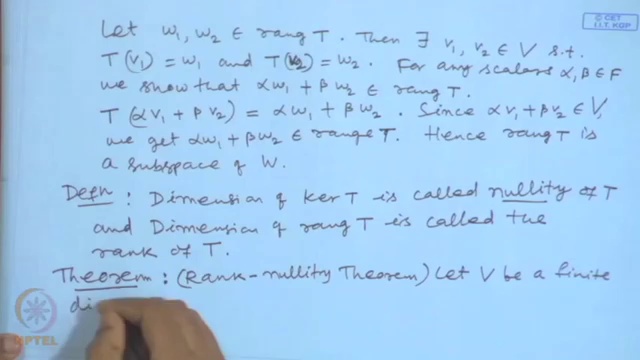 © CET
I.I.T. KGP
Let w₁, w₂ ∈ rang T. Then ∃ v₁, v₂ ∈ V s.t.
T(v₁) = w₁ and T(v₂) = w₂. For any scalars α, β ∈ F
we show that αw₁ + βw₂ ∈ rang T.
T(αv₁ + βv₂) = αw₁ + βw₂. Since αv₁ + βv₂ ∈ V,
we get αw₁ + βw₂ ∈ range T. Hence rang T is
a subspace of W.
Defn : Dimension of ker T is called nullity of T
and Dimension of rang T is called the
rank of T.
Theorem : (Rank-nullity Theorem) Let V be a finite
di
NPTEL